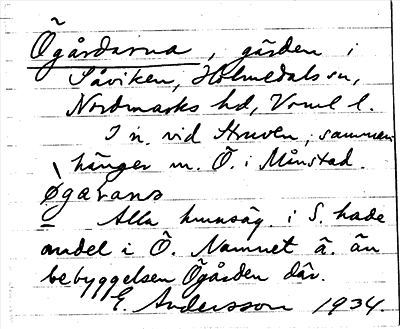 Ögårdarna, gärden i
Såviken, Holmedals sn,
Nordmarks hd, Vrml l.
I n. vid Struven; samman-
hänger m. Ö. i Månstad.
øgaɽans
Alla hmnsäg. i S. hade
andel i Ö. Namnet ä. än
bebyggelsen Ögården där.
E. Andersson 1934.